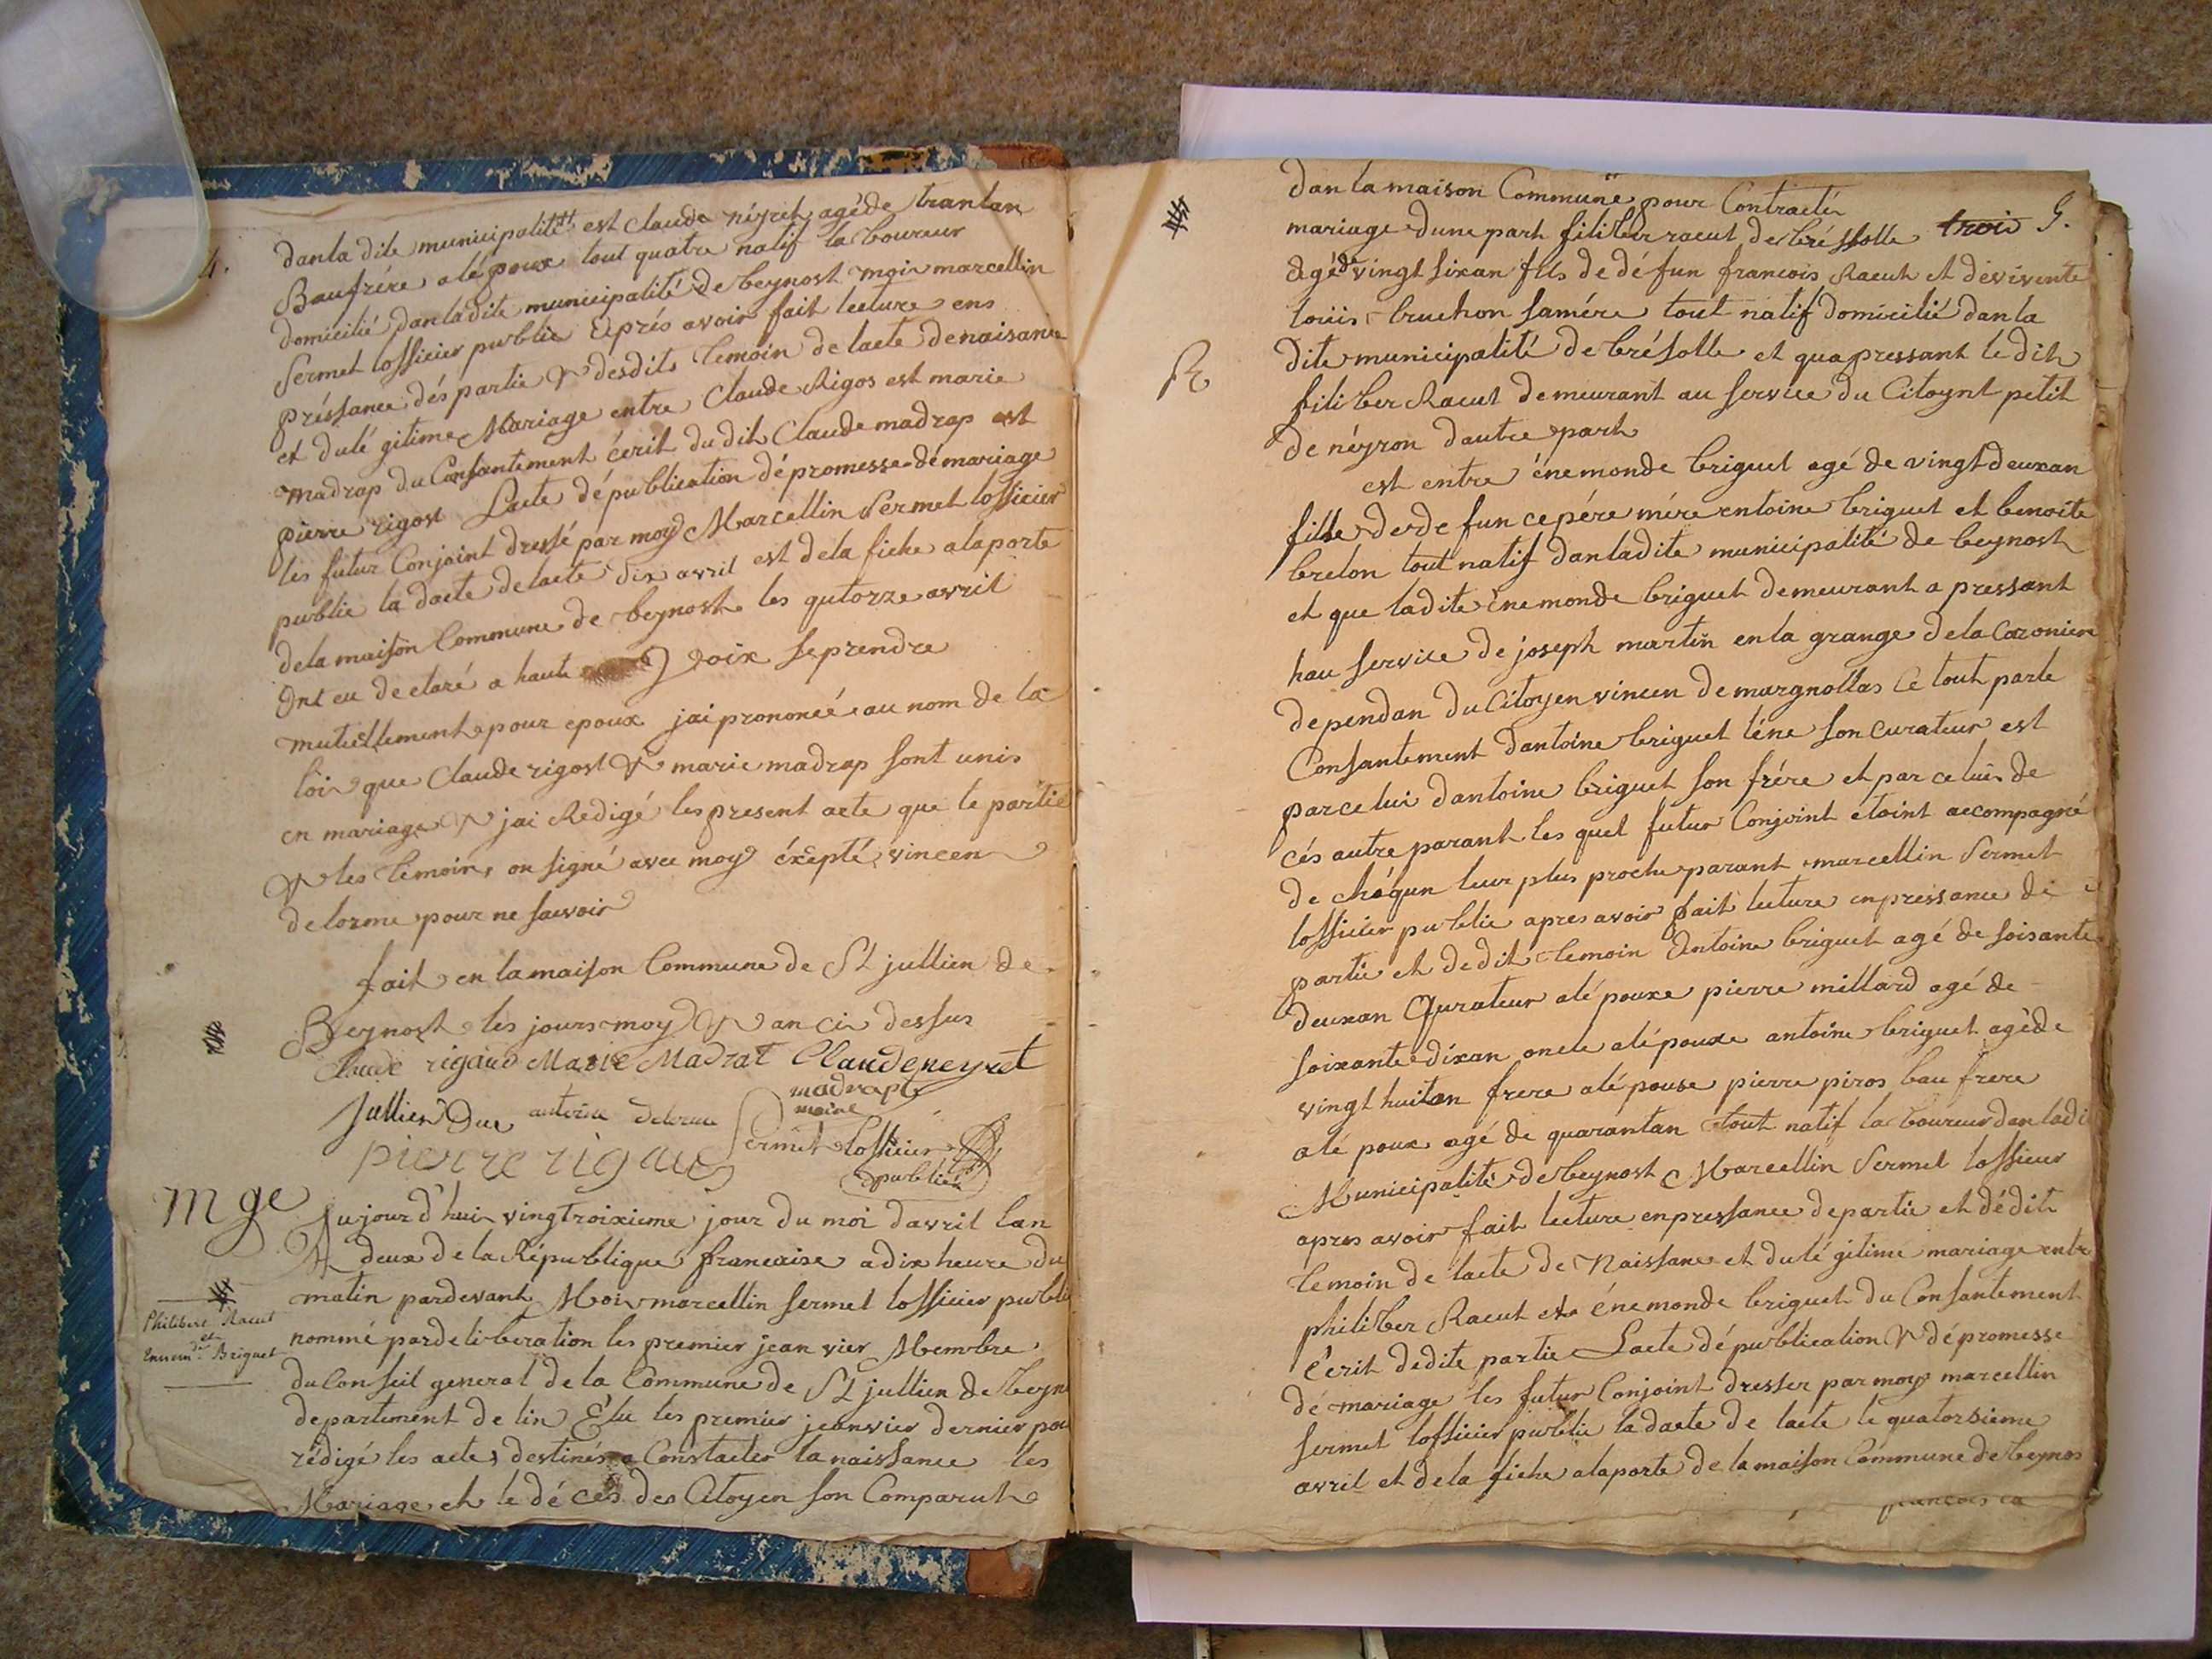 4.
danladite municipalité est claude néÿret agéde trantan
Baufrére alépoux tout quatre natif laboureur
domicilié danladite municipalité de beynost moi marcellin
Sermet lofficier public Eprés avoir fait lecture ens
préssance dés partie & desdits temoin de lacte denaisance
et dulé gitime Mariage entre Claude Rigos est marie
madrap du Consantement écrit dudit Claude madrap est
pierre rigost Lacte dépublication dépromesse démariage
les futur Conjoint dressé par moy Marcellin Sermet lofficier
public la dacte delacte dix avril est dela fiche alaporte
dela maison Commune de beynost les qutorze avril
Ont eu declaré a haute voix seprendre
mutuellement pour epoux jai prononcé au nom de la
loi que Claude rigost & marie madrap sont unis
en mariage & jai Redigé les present acte que le partie
& les temoins on signé avec moy éxepté vincen
delorme pour ne savoir
fait en lamaison Commune de St jullien de
Beynost les jours moy & an ci dessus
Claude rigaud Marie Madrat Claude neyret
madrapt
Jullien Duc antoine delorme maire
Sermet lofficier
pierre rigaud
public
Mge
Aujourd'hui vingtroixieme jour du moi davril lan
deux de la République francaise a dix heure du
matin pardevant Moi marcellin sermet lofficier public
Philibert Racut
et
Ennemde Briguet
nommé pardeliberation les premier jeanvier Membre
du Conseil general de la Commune de St jullien de Beyn
departement de lin Élu les premier jeanvier dernier pou
rédigé les actes destinés a Constacter la naissance les
Mariage et le décés des Citoyen son Comparut
dan la maison Commune pour Contracter
trois 5.
mariage dune part filiber racut de bréssolle
agé de vingt sixan fils de défun francois Racut et dévivente
louis bruchon samére tout natif domicilié dan la
R
dite municipalité de brésolle et qua pressant le dit
filiber Racut demeurant au service du Citoynt petit
de néyron dautre part
est entre énemonde briguet agé de vingt deuxan
fille dede fun cepére mére entoine briguet et benoite
brelon tout natif danladite municipalité de beynost
et que ladite énemonde briguet demeurant a pressant
hau service de joseph martin en la grange dela Cazoniere
dependan du Citoyen vincen de margnollas Ce tout parle
Consantement dantoine briguet léne son curateur est
parcelui dantoine briguet son frére et par celui de
cés autre parant les quel futur Conjoint etoint accompagné
de cháqun leur plus proche parant marcellin Sermet
lofficier public apres avoir fait lecture enpressance de
partie et dedit temoin Antoine briguet agé de soisante
deuxan Qurateur alépouxe pierre millard agé de
soixante dixan oncle alépouxe antoine briguet agéde
vingt huitan frere alépouse pierre piros bau frere
alé poux agé de quarantan tout natif laboureur dan ladi
Municipalité de beynost Marcellin Sermet lofficier
apres avoir fait lecture enpressance departie et dédit
temoin de lacte de Naissance et dulé gitime mariage entre
philiber Racut et énemonde briguet du Consantement
écrit dedite partie Lacte dépublication & dépromesse
dé mariage les futur Conjoint dresser par moy marcellin
sermet lofficier public la dacte de lacte le quatorsieme
avril et dela fiche alaporte de la maison Commune de beynos